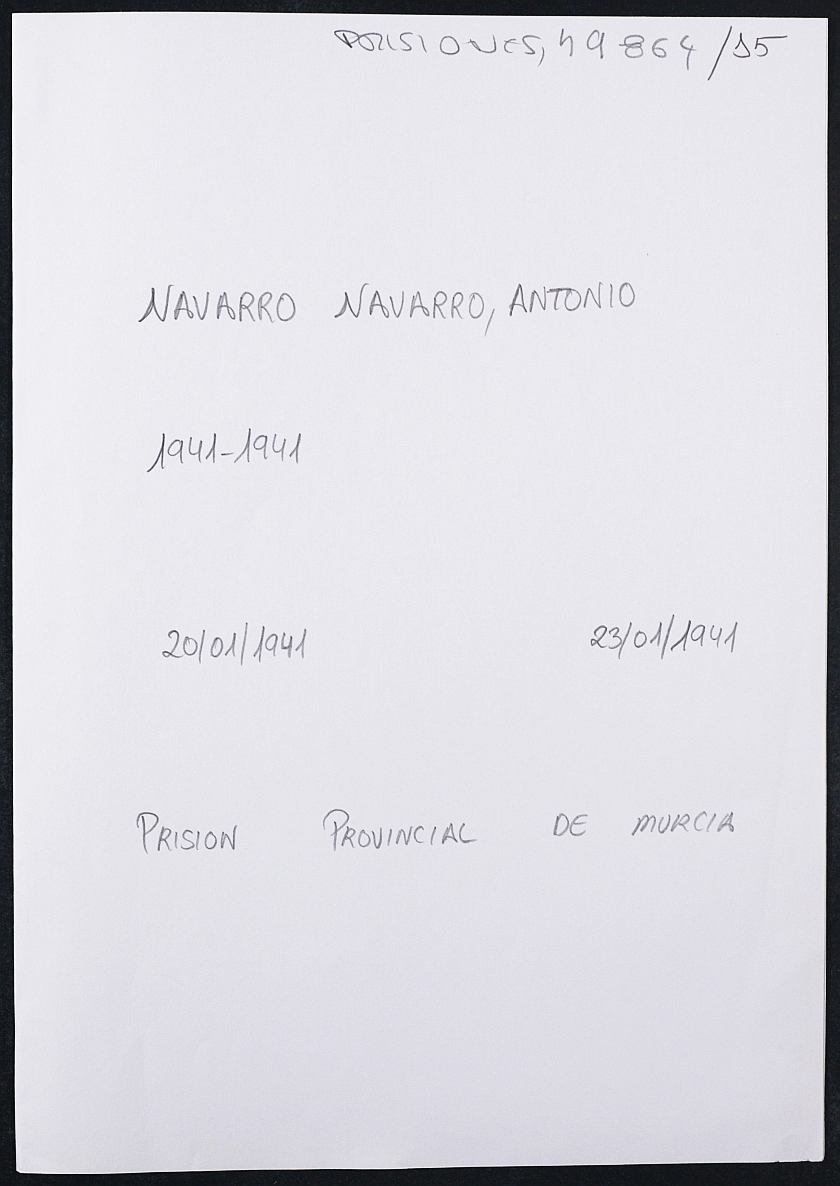 PRISIONES, 49864/15
NAVARRO NAVARRO, ANTONIO
1941-1941
20/01/1941 23/01/1941
PRISION PROVINCIAL DE MURCIA